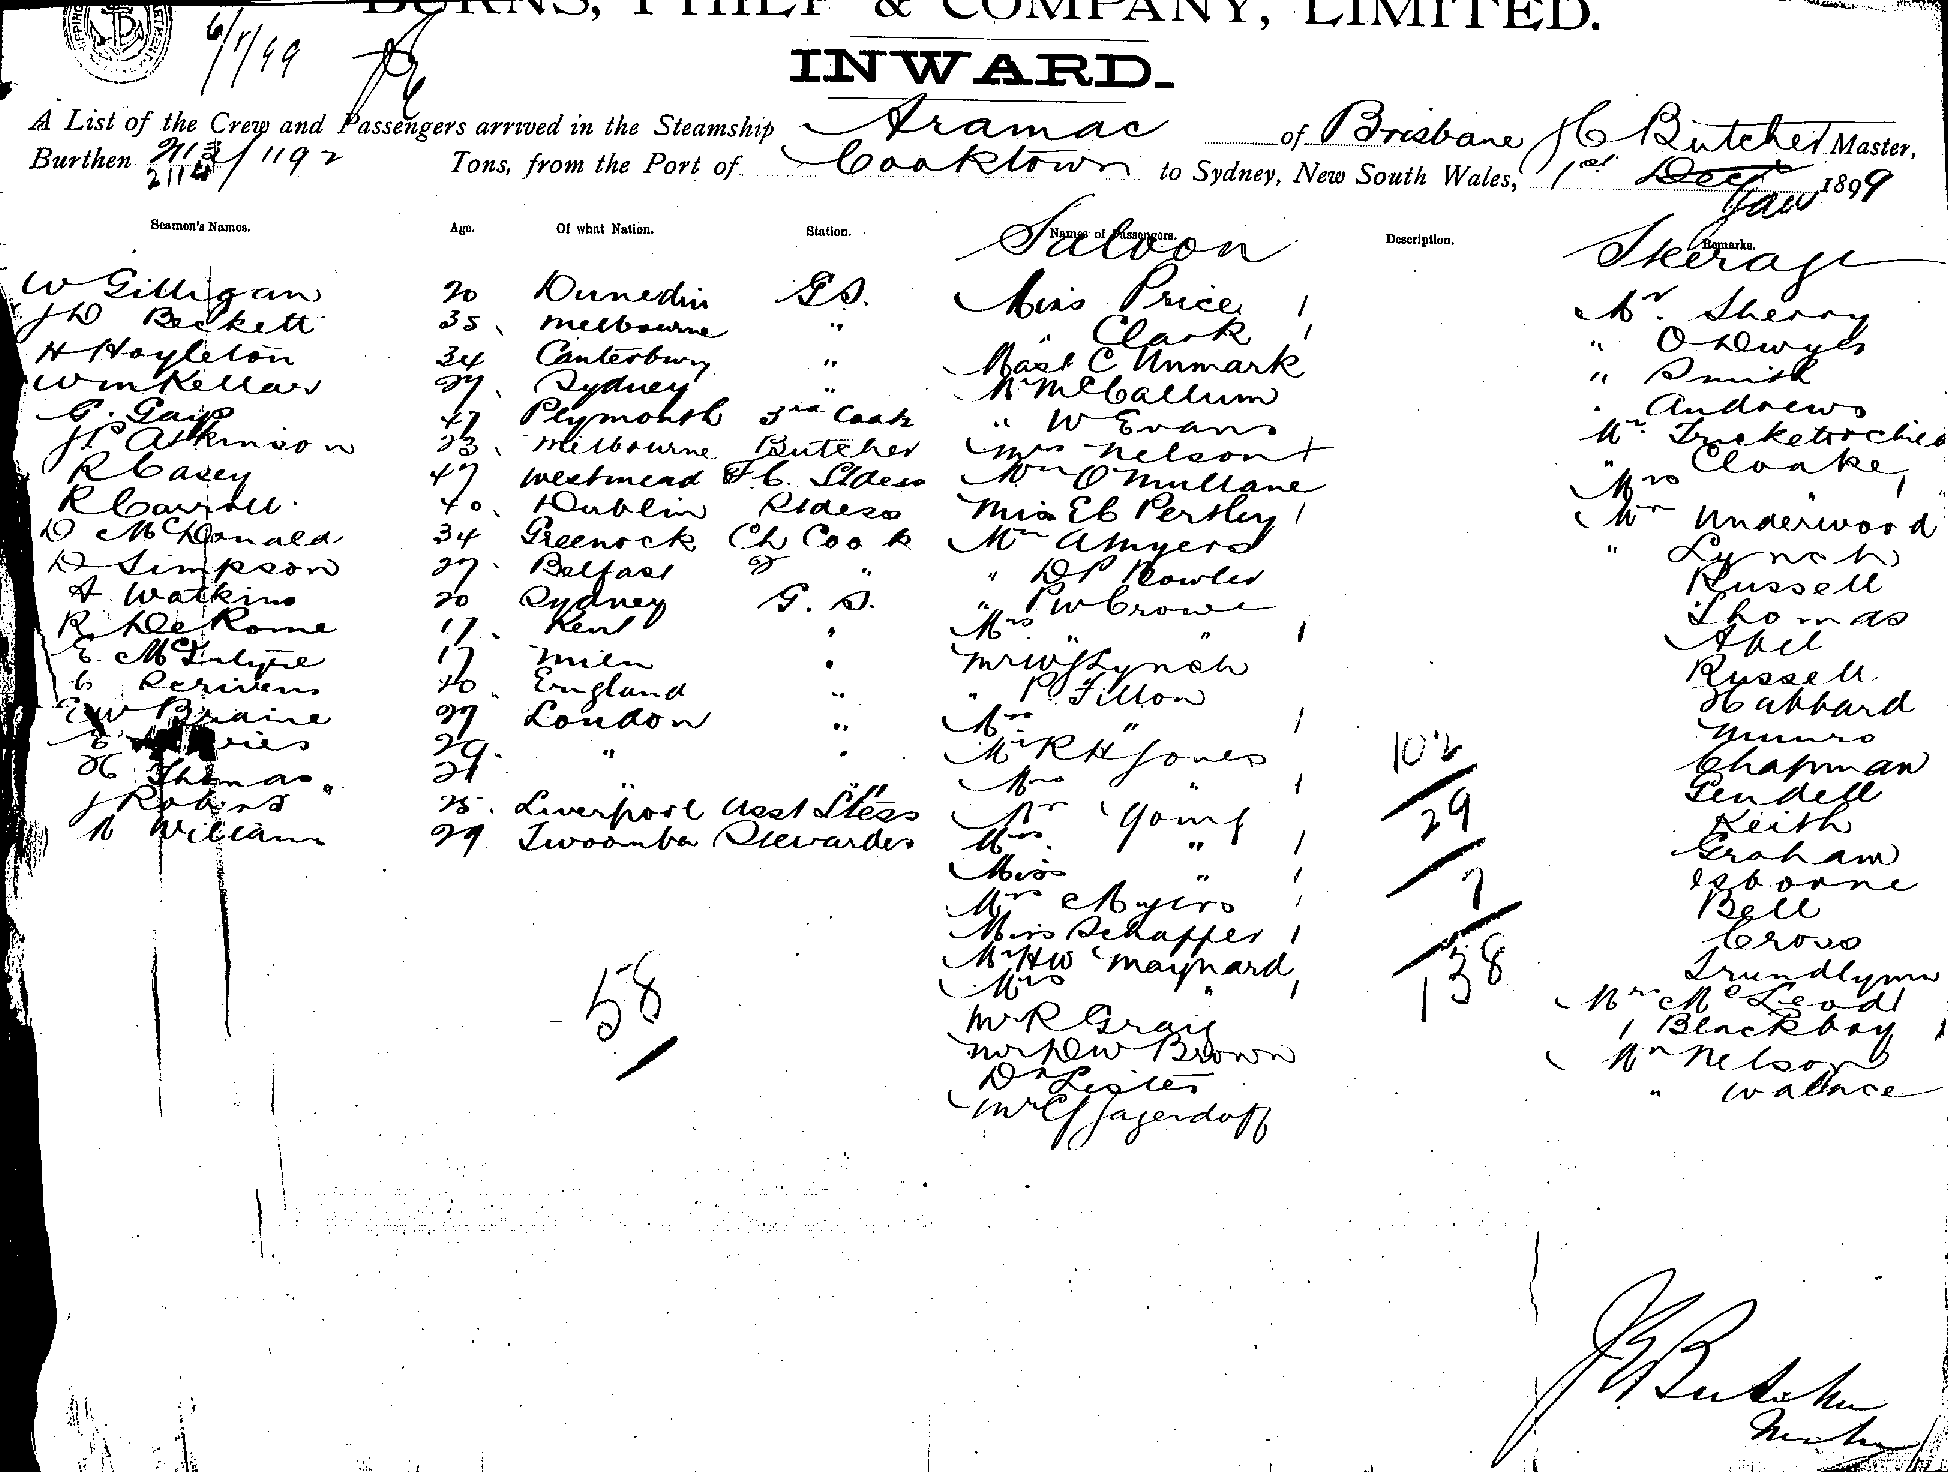 BURNS, PHILP & COMPANY, LIMITED.
6/1/99
INWARD.
A List of the Crew and Passengers arrived in the Steamship Aramac of Brisbane J C Butcher Master,
Burthen 2114/1192 Tons, from the Port of Cooktown to Sydney, New South Wales, 1st Dec Jan 1899
Seamen's Names. Age. Of what Nation. Station. Names of Passengers. Description. Remarks.
Saloon Steerage
W Gilligan 20 Dunedin G S.
J D Beckett 35 Melbourne "
H Hoyleton 34 Canterbury "
Wm Kellar 27. Sydney "
G. Gays 47 Plymouth 3rd Cook
J P Atkinson 23. Melbourne Butcher
R Casey 47 Westmead F. C. Stdess
R Carroll 40. Dublin Stdess
D McDonald 34 Greenock Ch Cook
D Simpson 27. Belfast 2 "
A Watkins 20 Sydney G. S.
R. De Rome 17. Kent "
E. McIntyre 17 Miln "
C Scrivens 40 England "
E W Braine 27 London "
E Davies 29. " "
H Thomas 21 " "
J Roberts 25. Liverpool Asst Stess
M William 29 Twoomba Stewardes
58
Miss Price 1
" Clark 1
Mast C Unmark
Mr McCallum
" W Evans
Mrs Nelson +
Mr O'Mullane
Miss E C Pertley 1
Mr A Myers
" D P Rowler
" P W Crowe
Mrs " " 1
Mr W J Lynch
" P. Fitton
Mrs " 1
Mr R H Jones
Mrs " 1
Mr Young
Mrs " 1
Miss " 1
Mrs Myers 1
Miss Schaffer 1
Mr H W Maynard
Mrs " 1
Mr R Graig
Mr D W Brown
Dr Lister
Mr C J Jagerdoff
102
29
7
138
Mr. Sherry
" O'Dwyer
" Smith
" Andrews
Mr.
" Cloake
Mrs " 1
Mr Underwood
" Lynch
Russell
Thomas
Abel
Russell
Habbard
Munro
Chapman
Lendell
Keith
Graham
Osborne
Bell
Cross
Mr McLeod
1 Blackboy 1
Mr Nelson
" Wallace
J C Butcher
Master